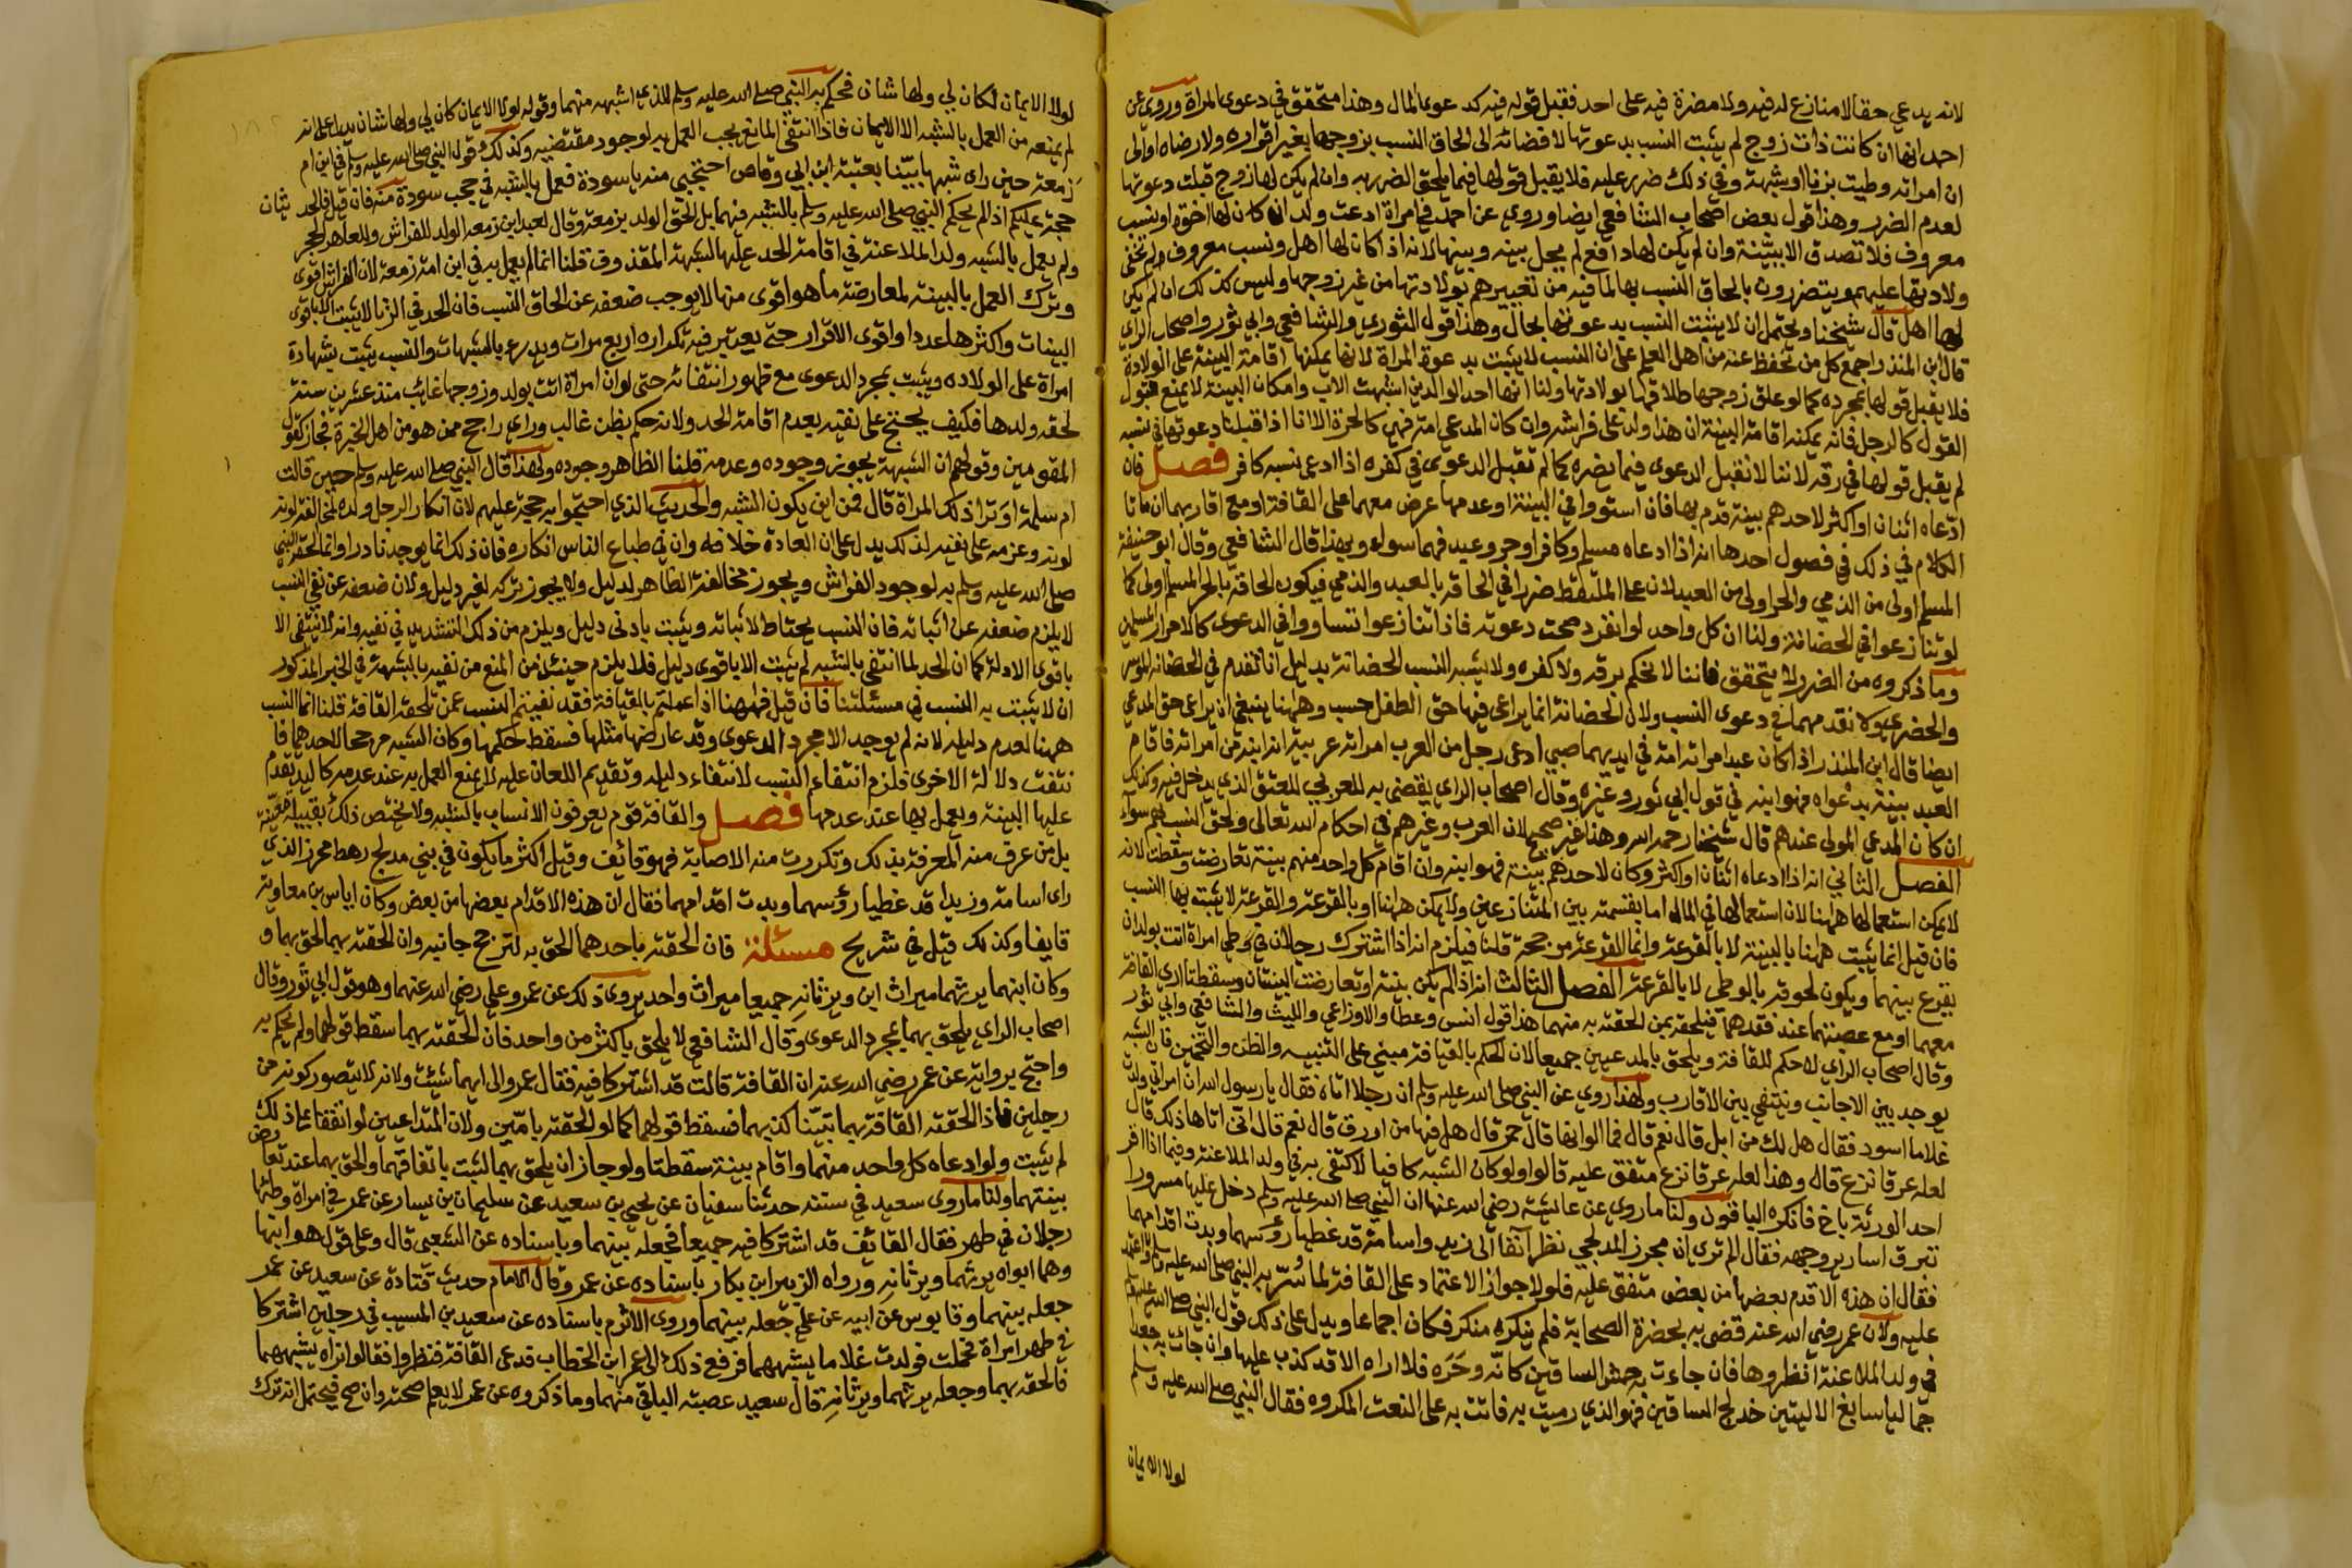 لانه يدعي حقا لامنازع له فيه ولا مضرة فيه على احد فقبل قوله فيه كدعوى المال وهذا متحقق في دعوى المراة وروي عن
احمد انها ان كانت ذات زوج لم يثبت النسب بدعوتها لافضائه الى الحاق النسب بزوجها بغير اقراره ولا رضاه او الى
ان امراته وطيت بزنا او شبهة وفي ذلك ضرر عليه فلا يقبل قولها فيما يلحق الضرر به وان لم يكن لها زوج قبلت دعوتها
لعدم الضرر وهذا قول بعض اصحاب الشافعي ايضا وروي عن احمد في امراة ادعت ولدا ان كان لها اخوة او نسب
معروف فلا تصدق الا ببينة وان لم يكن لها دافع لم يحل بينه وبينها لانه اذا كان لها اهل ونسب معروف لم تخفى
ولادتها عليهم ويتضررون بالحاق النسب بها لما فيه من تعييرهم بولادتها من غير زوجها وليس كذلك ان لم يكن
لها اهل قال شيخنا ويحتمل ان لا يثبت النسب بدعوتها بحال وهذا قول الثوري والشافعي وابي ثور واصحاب الراي
قال ابن المنذر اجمع كل من نحفظ عنه من اهل العلم على ان النسب لا يثبت بدعوة المراة لانها يمكنها اقامة البينة على الولادة
فلا يقبل قولها بمجرده كما لو علق زوجها طلاقها بولادتها ولنا انها احد الوالدين اشبهت الاب وامكان البينة لا يمنع قبول
القول كالرجل فانه يمكنه اقامة البينة ان هذا ولد على فراشه وان كان المدعي امة فهي كالحرة الا انا اذا قبلنا دعوتها في نسبه
لم يقبل قولها في رقه لاننا لا نقبل الدعوى فيما يضره كما لم تقبل الدعوى في كفره اذا ادعى نسبه كافر فصل فان
ادعاه اثنان او اكثر لاحدهم بينة قدم بها فان استووا في البينة او عدمها عرض معهما على القافة او مع اقاربهما ان ماتا
الكلام في ذلك في فصول احدها انه اذا ادعاه مسلم وكافر او حر وعبد فهما سواء وبهذا قال الشافعي وقال ابو حنيفة
المسلم اولى من الذمي والحر اولى من العبد لان على الملتقط ضررا في الحاقه بالعبد والذمي فيكون الحاقه بالحر المسلم اولى كما
لو تنازعوا في الحضانة ولنا ان كل واحد لو انفرد صحت دعوته فاذا تنازعوا تساووا في الدعوى كالاحرار المسلمين
وما ذكروه من الضرر لا يتحقق فاننا لا نحكم برقه ولا كفره ولا يشبه النسب الحضانة بدليل اننا نقدم في الحضانة الموسر
والحضري ولا نقدمهما في دعوى النسب ولان الحضانة انما يراعى فيها حق الطفل حسب وههنا ينبغي ان يراعى حق المدعي
ايضا قال ابن المنذر اذا كان عبد امراته امة في ايديهما صبي ادعى رجل من العرب امراته عربية انه ابنه من امراته فاقام
العبد بينة بدعواه فهو ابنه في قول ابي ثور وغيره وقال اصحاب الراي يقضى به للعربي للعتق الذي يدخل فيه وكذلك
ان كان المدعي المولى عندهم قال شيخنا رحمه الله وهذا غير صحيح لان العرب وغيرهم في احكام الله تعالى ولحق النسب بهم سواء
الفصل الثاني انه اذا ادعاه اثنان او اكثر وكان لاحدهم بينة فهو ابنه وان اقام كل واحد منهم بينة تعارضت وسقطت لانه
لا يمكن استعمالها ههنا لان استعمالها في المال اما بقسمته بين المتنازعين ولا يمكن ههنا او بالقرعة والقرعة لا يثبت بها النسب
فان قيل انما يثبت ههنا بالبينة لا بالقرعة وانما القرعة مرجحة قلنا فيلزم انه اذا اشترك رجلان في وطي امراة اتت بولد ان
يقرع بينهما ويكون لحوقه بالوطي لا بالقرعة الفصل الثالث انه اذا لم يكن بينة او تعارضت البينتان وسقطتا اري القافة
معهما او مع عصبتهما عند فقدهما فنلحقه بمن الحقته به منهما هذا قول انس وعطا والاوزاعي والليث والشافعي وابي ثور
وقال اصحاب الراي لا حكم للقافة ويلحق بالمدعيين جميعا لان الحكم بالقيافة مبني على الشبه والظن والتخمين فان الشبه
يوجد بين الاجانب وينتفي بين الاقارب ولهذا روي عن النبي صلى الله عليه وسلم ان رجلا اتاه فقال يا رسول الله ان امراتي ولدت
غلاما اسود فقال هل لك من ابل قال نعم قال فما الوانها قال حمر قال هل فيها من اورق قال نعم قال انى اتاها ذلك قال
لعله عرقا نزع قال وهذا لعله عرقا نزع متفق عليه قالوا ولو كان الشبه كافيا لاكتفى به في ولد الملاعنة وفيما اذا اقر
احد الورثة باخ فانكره الباقون ولنا ما روي عن عائشة رضي الله عنها ان النبي صلى الله عليه وسلم دخل عليها مسرورا
تبرق اسارير وجهه فقال الم تري ان مجرز المدلجي نظر آنفا الى زيد واسامة قد غطيا رؤسهما وبدت اقدامهما
فقال ان هذه الاقدم بعضها من بعض متفق عليه فلولا جواز الاعتماد على القافة لما سر به النبي صلى الله عليه وسلم واعتمد
عليه ولان عمر رضي الله عنه قضى به بحضرة الصحابة فلم ينكره منكر فكان اجماعا ويدل على ذلك قول النبي صلى الله عليه وسلم
في ولد الملاعنة انظروها فان جاءت به حمش الساقين كانه وحره فلا اراه الا قد كذب عليها وان جات به جعدا
جماليا سابغ الاليتين خدلج الساقين فهو الذي رميت به فاتت به على النعت المكروه فقال النبي صلى الله عليه وسلم
لولا الايمان
لولا الايمان لكان لي ولها شان فحكم به النبي صلى الله عليه وسلم للذي اشبهه منهما وقوله لولا الايمان كان لي ولها شان يدل على انه
لم يمنعه من العمل بالشبه الا الايمان فاذا انتفى المانع يجب العمل به لوجود مقتضيه وكذلك قول النبي صلى الله عليه وسلم في ابن ام
زمعة حين راى شبها بينا بعتبة ابن ابي وقاص احتجبي منه يا سودة فعمل بالشبه في حجب سودة منه فان قيل فالحديثان
حجة عليكم اذ لم يحكم النبي صلى الله عليه وسلم بالشبه فيهما بل الحق الولد بزمعة وقال لعبد ابن زمعة الولد للفراش وللعاهر الحجر
ولم يعمل بالشبه ولد الملاعنة في اقامة الحد عليها لشبهه المقذوف قلنا انما لم يعمل به في ابن امة زمعة لان الفراش اقوى
وترك العمل بالبينة لمعارضة ما هو اقوى منها لا يوجب ضعفه عن الحاق النسب فان الحد في الزنا لا يثبت الا باقوى
البينات واكثرها عددا واقوى الاقرار حتى يعتبر فيه تكراره اربع مرات ويدرء بالشبهات والنسب يثبت بشهادة
امراة على الولاده ويثبت بمجرد الدعوى مع ظهور انتفائه حتى لو ان امراة اتت بولد وزوجها غائب منذ عشرين سنة
لحقه ولدها فكيف يحتج على نفيه بعدم اقامة الحد ولانه حكم بظن غالب وراي راجح ممن هو من اهل الخبرة فجاز كقول
المقومين وقولهم ان الشبهة يجوز وجوده وعدمه قلنا الظاهر وجوده ولهذا قال النبي صلى الله عليه وسلم حين قالت
ام سلمة او ترا ذلك المراة قال فمن اين يكون الشبه والحديث الذي احتجوا به حجة عليهم لان انكار الرجل ولده لمخالفة لونه
لونه وعزمه على نفيه لذلك يدل على ان العادة خلافه وان في طباع الناس انكاره فان ذلك انما يوجد نادرا وانما الحقه النبي
صلى الله عليه وسلم به لوجود الفراش ويجوز مخالفة الظاهر لدليل ولا يجوز تركه لغير دليل ولان ضعفه عن نفي النسب
لا يلزم ضعفه عن اثباته فان النسب يحتاط لاثباته ويثبت بادنى دليل ويلزم من ذلك التشديد في نفيه وانه لا ينتفي الا
باقوى الادلة كما ان الحد لما انتفى بالشبه لم يثبت الا باقوى دليل فلا يلزم حينئذ من المنع من نفيه بالشبهة في الخبر المذكور
ان لا يثبت به النسب في مسئلتنا فان قيل فههنا اذا عملتم بالقيافة فقد نفيتم النسب عمن لم تلحقه القافة قلنا انما النسب
ههنا لعدم دليله لانه لم يوجد الا مجرد الدعوى وقد عارضها مثلها فسقط حكمها وكان الشبه مرجحا لاحدهما فا
نتفت دلالة الاخرى فلزم انتفاء النسب لانتفاء دليله وتقديم اللعان عليه لا يمنع العمل به عند عدمه كاليد يقدم
عليها البينة ويعمل بها عند عدمها فصل والقافة قوم يعرفون الانساب بالشبه ولا يختص ذلك بقبيلة معينة
بل من عرف منه المعرفة بذلك وتكررت منه الاصابة فهو قائف وقيل اكثر ما يكون في بني مدلج رهط مجرز الذي
راى اسامة وزيدا قد غطيا رؤسهما وبدت اقدامهما فقال ان هذه الاقدام بعضها من بعض وكان اياس بن معاوية
قايفا وكذلك قيل في شريح مسئلة فان الحقته باحدهما الحق به لترجح جانبه وان الحقته بهما لحق بهما و
وكان ابنهما يرثهما ميراث ابن ويرثانه جميعا ميراث واحد يروى ذلك عن عمر وعلي رضي الله عنهما وهو قول ابي ثور وقال
اصحاب الراي يلحق بهما بمجرد الدعوى وقال الشافعي لا يلحق باكثر من واحد فان الحقته بهما سقط قولهما ولم يحكم به
واحتج برواية عن عمر رضي الله عنه ان القافة قالت قد اشتركا فيه فقال عمر والى ايهما شئت ولانه لا يتصور كونه من
رجلين فاذا الحقته القافة بهما تبينا كذبهما فسقط قولهما كما لو الحقته بامين ولان المتداعيين لو اتفقا على ذلك
لم يثبت ولو ادعاه كل واحد منهما واقام بينة سقطتا ولو جاز ان يلحق بهما لثبت باتفاقهما والحق بهما عند تعارض
بينتهما ولنا ما روى سعيد في سننه حدثنا سفيان عن يحيى بن سعيد عن سليمان بن يسار عن عمر في امراة وطئها
رجلان في طهر فقال القائف قد اشتركا فيه جميعا فجعله بينهما وباسناده عن الشعبي قال وعلي قول هو ابنهما
وهما ابواه يرثهما ويرثانه ورواه الزبير ابن بكار باسناده عن عمر وقال الامام حديث قتادة عن سعيد عن عمر
جعله بينهما وقابوس عن ابيه عن علي جعله بينهما وروى الاثرم باسناده عن سعيد بن المسيب في رجلين اشتركا
في طهر امراة فحملت فولدت غلاما يشبههما فرفع ذلك الى عمر ابن الخطاب فدعى القافة فنظروا فقالوا نراه يشبههما
فالحقه بهما وجعله يرثهما ويرثانه قال سعيد عصبته الباقي منهما وما ذكروه عن عمر لا يعلم صحته وان صح فيحتمل انه ترك